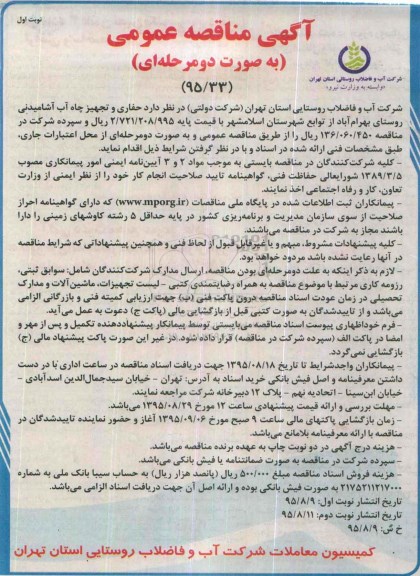 نوبت اول
آگهی مناقصه عمومی
(به صورت دومرحله‌ای)
(۹۵/۳۳)
شرکت آب و فاضلاب روستایی استان تهران
وابسته به وزارت نیرو
شرکت آب و فاضلاب روستایی استان تهران (شرکت دولتی) در نظر دارد حفاری و تجهیز چاه آب آشامیدنی
روستای بهرام‌آباد از توابع شهرستان اسلامشهر با قیمت پایه ۲/۷۲۱/۲۰۸/۹۹۵ ریال و سپرده شرکت در
مناقصه ۱۳۶/۰۶۰/۴۵۰ ریال را از طریق مناقصه عمومی و به صورت دومرحله‌ای از محل اعتبارات جاری،
طبق مشخصات فنی ارائه شده در اسناد و با در نظر گرفتن شرایط ذیل اقدام نماید.
- کلیه شرکت‌کنندگان در مناقصه بایستی به موجب مواد ۲ و ۳ آیین‌نامه ایمنی امور پیمانکاری مصوب
۱۳۸۹/۳/۵ شورایعالی حفاظت فنی، گواهینامه تایید صلاحیت انجام کار خود را از نظر ایمنی از وزارت
تعاون، کار و رفاه اجتماعی اخذ نمایند.
- پیمانکاران ثبت اطلاعات شده در پایگاه ملی مناقصات (www.mporg.ir) که دارای گواهینامه احراز
صلاحیت از سوی سازمان مدیریت و برنامه‌ریزی کشور در پایه حداقل ۵ رشته کاوشهای زمینی را دارا
باشند مجاز به شرکت در مناقصه می‌باشند.
- کلیه پیشنهادات مشروط، مبهم و یا غیرقابل قبول از لحاظ فنی و همچنین پیشنهاداتی که شرایط مناقصه
در آنها رعایت نشده باشد مردود خواهد بود.
- لازم به ذکر اینکه به علت دومرحله‌ای بودن مناقصه، ارسال مدارک شرکت‌کنندگان شامل: سوابق ثبتی،
رزومه کاری مرتبط با موضوع مناقصه به همراه رضایتمندی کتبی - لیست تجهیزات، ماشین‌آلات و مدارک
تحصیلی در زمان عودت اسناد مناقصه درون پاکت فنی (ب) جهت ارزیابی کمیته فنی و بازرگانی الزامی
می‌باشد و از تاییدشدگان به صورت کتبی قبل از بازگشایی مالی (پاکت ج) دعوت به عمل می‌آید.
- فرم خوداظهاری پیوست اسناد مناقصه می‌بایستی توسط پیمانکار پیشنهاددهنده تکمیل و پس از مهر و
امضا در پاکت الف (سپرده شرکت در مناقصه) قرار داده شود، در غیر این صورت پاکت پیشنهاد مالی (ج)
بازگشایی نمی‌گردد.
- پیمانکاران واجدشرایط تا تاریخ ۱۳۹۵/۰۸/۱۸ جهت دریافت اسناد مناقصه در ساعت اداری با در دست
داشتن معرفینامه و اصل فیش بانکی خرید اسناد به آدرس: تهران - خیابان سیدجمال‌الدین اسدآبادی -
خیابان ابن‌سینا - اتحادیه نهم - پلاک ۱۲ دبیرخانه شرکت مراجعه نمایند.
- مهلت بررسی و ارائه قیمت پیشنهادی ساعت ۱۲ مورخ ۱۳۹۵/۰۸/۲۹ می‌باشد.
- زمان بازگشایی پاکتهای مالی ساعت ۹ صبح مورخ ۱۳۹۵/۰۹/۰۶ آغاز و حضور نماینده تاییدشدگان در
مناقصه با ارائه معرفینامه بلامانع می‌باشد.
- هزینه درج آگهی در دو نوبت چاپ به عهده برنده مناقصه می‌باشد.
- سپرده شرکت در مناقصه به صورت ضمانتنامه یا فیش بانکی می‌باشد.
- هزینه فروش اسناد مناقصه مبلغ ۵۰۰/۰۰۰ ریال (پانصد هزار ریال) به حساب سیبا بانک ملی به شماره
۲۱۷۵۲۱۱۲۱۷۰۰۰ به صورت فیش بانکی بوده و ارائه اصل آن جهت دریافت اسناد الزامی می‌باشد.
تاریخ انتشار نوبت اول: ۹۵/۸/۹
تاریخ انتشار نوبت دوم: ۹۵/۸/۱۱
خ ش: ۹۵/۸/۹
کمیسیون معاملات شرکت آب و فاضلاب روستایی استان تهران